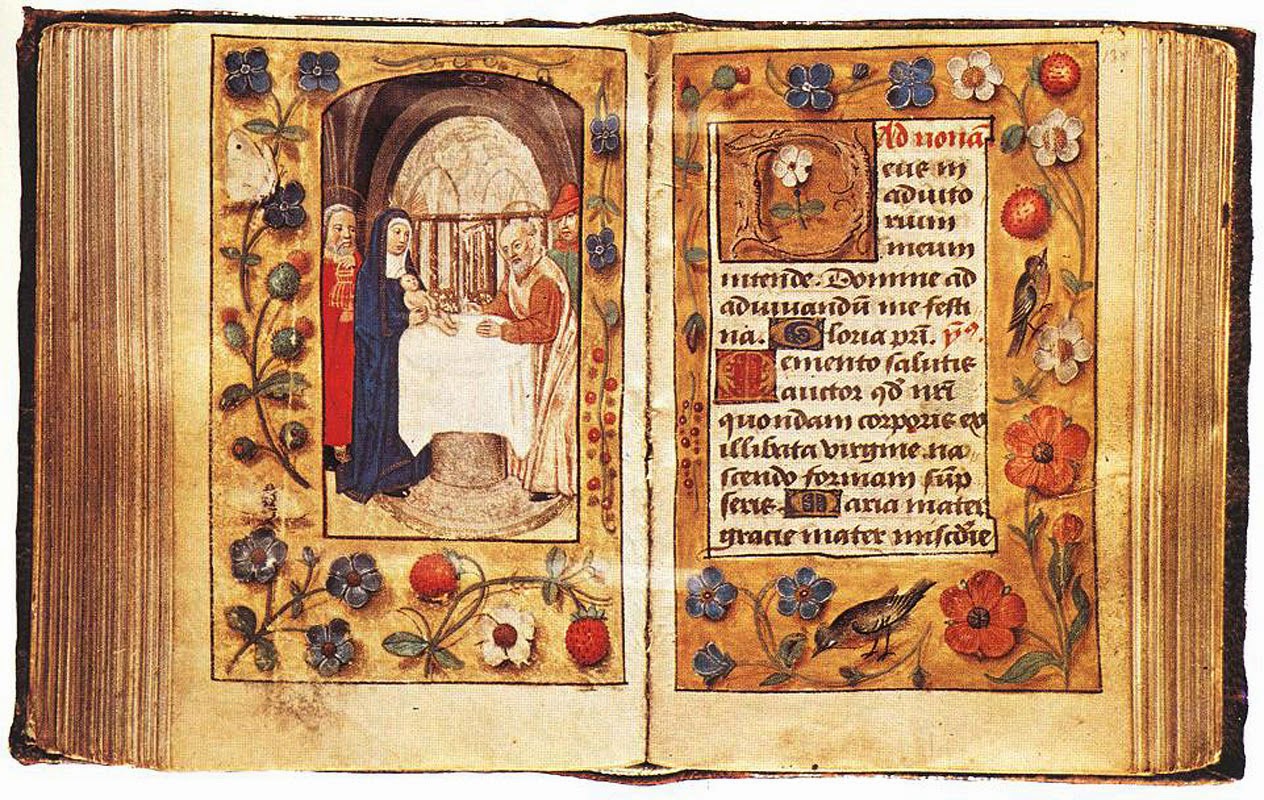 Ad nonā
Deus in
adiuto
rium
meum
intende. Domine ad
adiuuandū me festi
na. Gloria pr̄i. ỹꝰ.
Memento salutis
auctor qd̄ nr̄i
quondam corporis ex
illibata virgine na
scendo formam sūp
seris. Maria mater
gracie mater